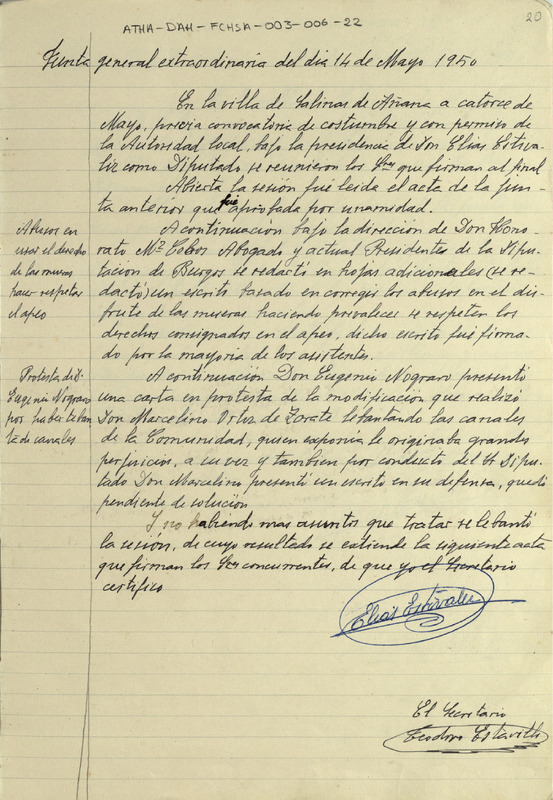 20
ATHA-DAH-FCHSA-003-006-22
Junta general extraordinaria del dia 14 de Mayo 1950
En la villa de Salinas de Añana a catorce de
Mayo, previa convocatoria de costumbre y con permiso de
la Autoridad local, bajo la presidencia de Don Elias Estiva-
liz como Diputado se reunieron los Sres que firman al final
Abierta la sesión fué leida el acta de la jun-
ta anterior que fué aprobada por unanidad.
A continuación bajo la dirección de Don Hono-
rato Mª Cobos Abogado y actual Presidentes de la Dipu-
tacion de Burgos se redactó en hojas adicionales (se re-
dactó) un escrito basado en corregir los abusos en el dis-
frute de las mueras haciendo prevalecer se respeten los
derechos consignados en el apeo, dicho escrito fué firma-
do por la mayoria de los asistentes.
Abusos en
usar el derecho
de las mueras
hacer respetar
el apeo
A continuación Don Eugenio Nograro presentó
una carta en protesta de la modificacion que realizó
Don Marcelino Ortiz de Zarate lebantando las canales
de la Comunidad, quien exponia le originaba grandes
perjuicios, a su vez y tambien por conducto del Sr Dipu-
tado Don Marcelino presentó un escrito en su defensa, quedó
pendiente de solución
Protesta de D.
Eugenio Nograro
por haber leban
te de canales
Y no habiendo mas asuntos que tratar se lebantó
la sesión, de cuyo resultado se extiende la siguiente acta
que firman los Sres concurrentes, de que yo el Secretario
certifico
Elias Estivaliz
El Secretario
Teodoro Estavillo